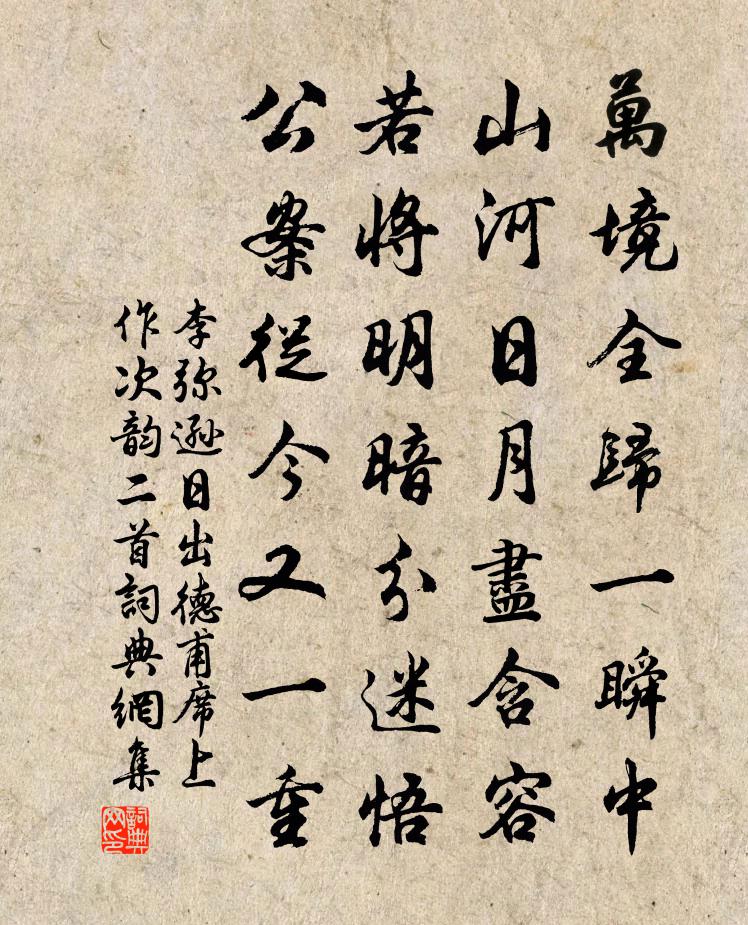 萬境全歸一瞬中
山河日月盡含容
若將明暗分迷悟
公案從今又一重
李弥遜日出德甫席上
作次韵二首詞典網集
詞典网印